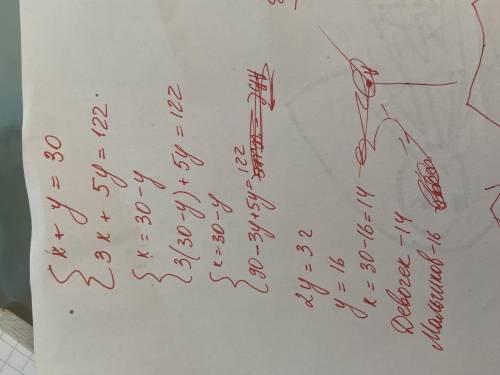 x + y = 30
3x + 5y = 122.
x = 30 - y
3(30-y) + 5y = 122
x = 30 - y
90 - 3y + 5y = 122
2y = 32
y = 16
x = 30 - 16 = 14
Девочек - 14
Мальчиков - 16